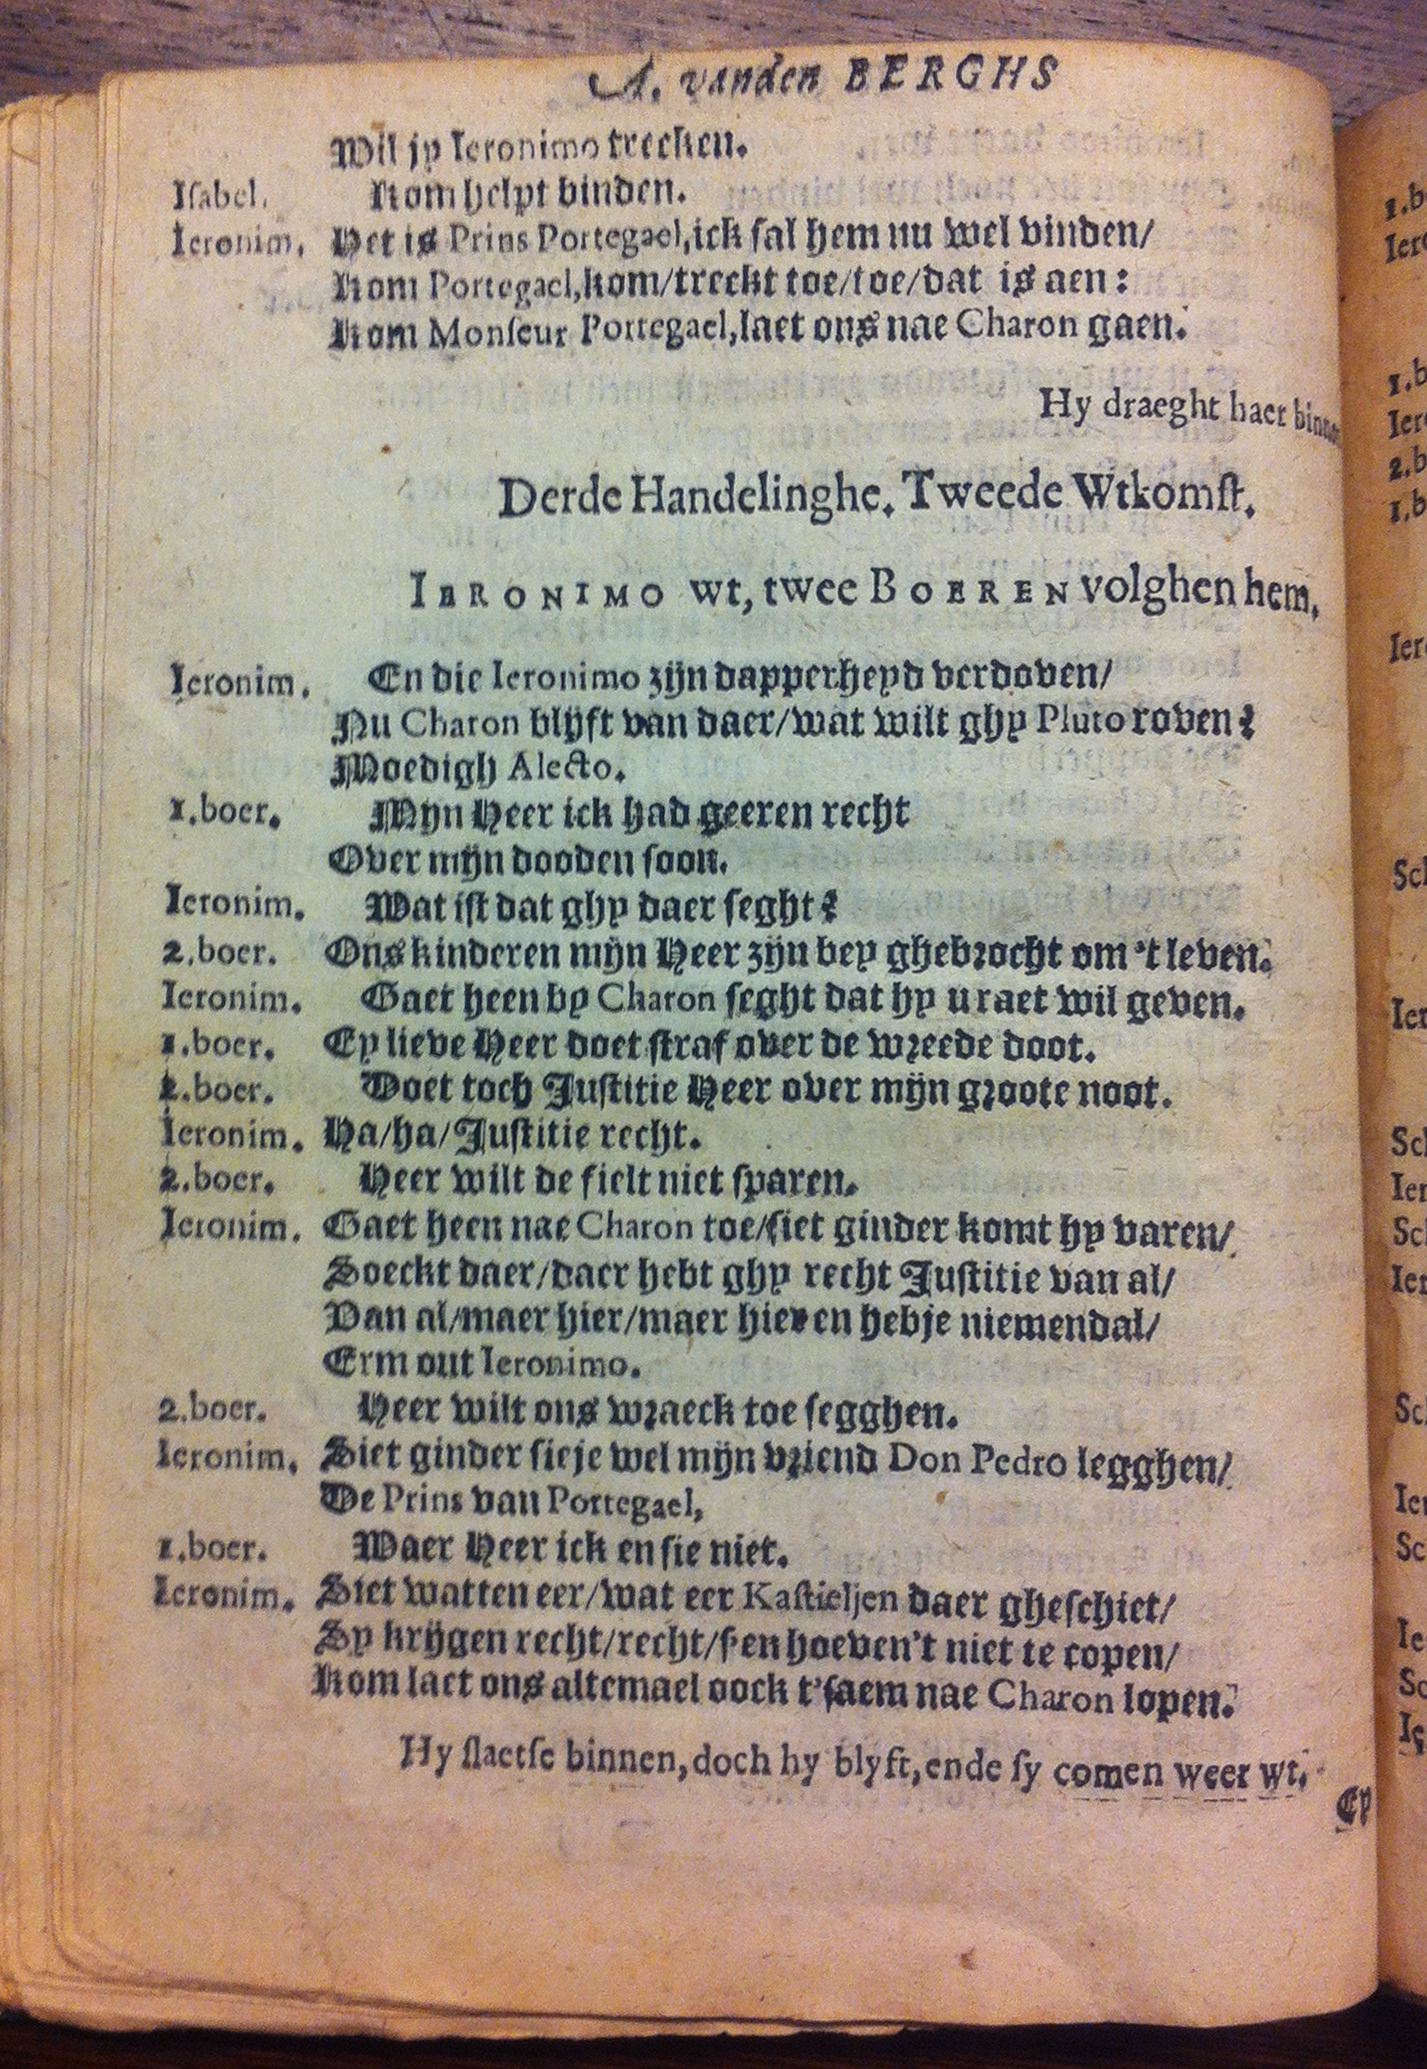 A. vanden BERGHS
Wil jy Ieronimo trecken.
Isabel. Kom helpt binden.
Ieronim. Het is Prins Portegael, ick sal hem nu wel vinden/
Kom Portegael, kom/treckt toe/toe/dat is aen:
Kom Monseur Portegael, laet ons nae Charon gaen.
Hy draeght haer binnen
Derde Handelinghe. Tweede Wtkomst.
IERONIMO wt, twee BOEREN volghen hem.
Ieronim. En die Ieronimo zijn dapperheyd verdoven/
Nu Charon blijft van daer/wat wilt ghy Pluto roven?
Moedigh Alecto.
1.boer. Mijn Heer ick had geeren recht
Over mijn dooden soon.
Ieronim. Wat ist dat ghy daer seght?
2.boer. Ons kinderen mijn Heer zijn bey ghebrocht om 't leven.
Ieronim. Gaet heen by Charon seght dat hy u raet wil geven.
1.boer. Ey lieve Heer doet straf over de wreede doot.
2.boer. Doet toch Justitie Heer over mijn groote noot.
Ieronim. Ha/ha/Justitie recht.
2.boer. Heer wilt de fielt niet sparen.
Ieronim. Gaet heen nae Charon toe/siet ginder komt hy varen/
Soeckt daer/daer hebt ghy recht Justitie van al/
Van al/maer hier/maer hier en hebje niemendal/
Erm out Ieronimo.
2.boer. Heer wilt ons wraeck toe segghen.
Ieronim. Siet ginder sieje wel mijn vriend Don Pedro legghen/
De Prins van Portegael,
1.boer. Waer Heer ick en sie niet.
Ieronim. Siet watten eer/wat eer Kastieljen daer gheschiet/
Sy krijgen recht/recht/s' en hoeven't niet te copen/
Kom laet ons altemael oock t'saem nae Charon lopen.
Hy slaetse binnen, doch hy blyft, ende sy comen weer wt.
Ey